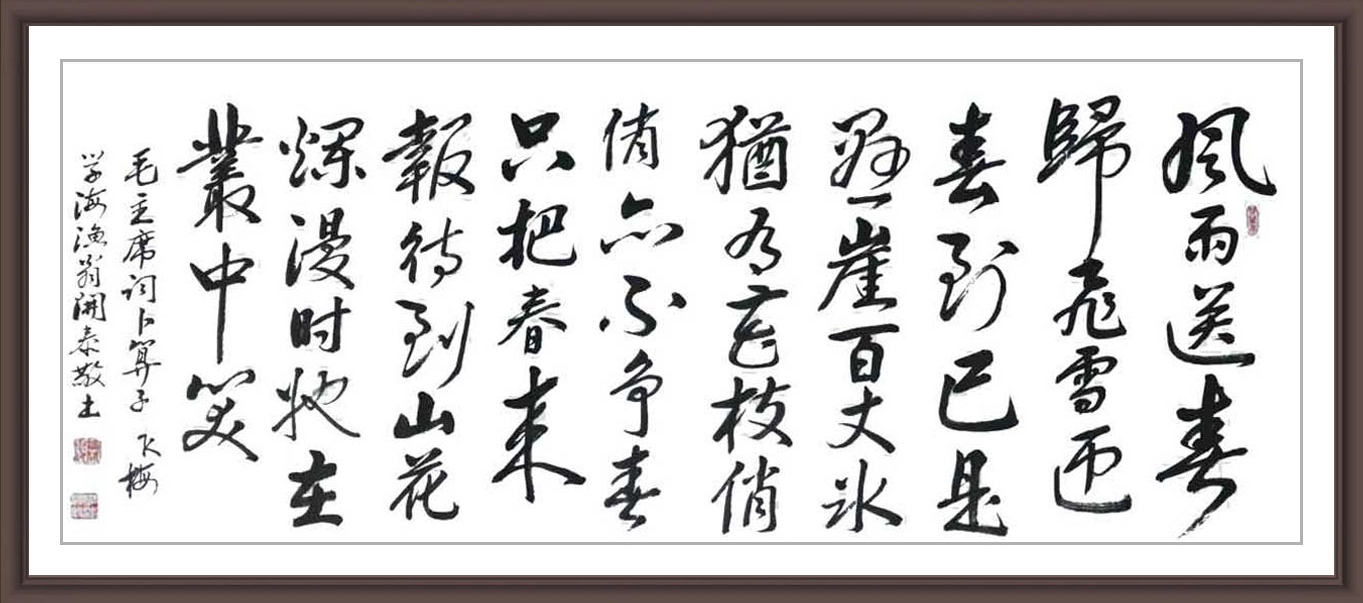 风雨送春
歸飛雪迎
春到已是
懸崖百丈冰
猶有花枝俏
俏亦不争春
只把春来
報待到山花
爛漫时她在
叢中笑
毛主席詞卜算子 咏梅
学海漁翁開泰敬书